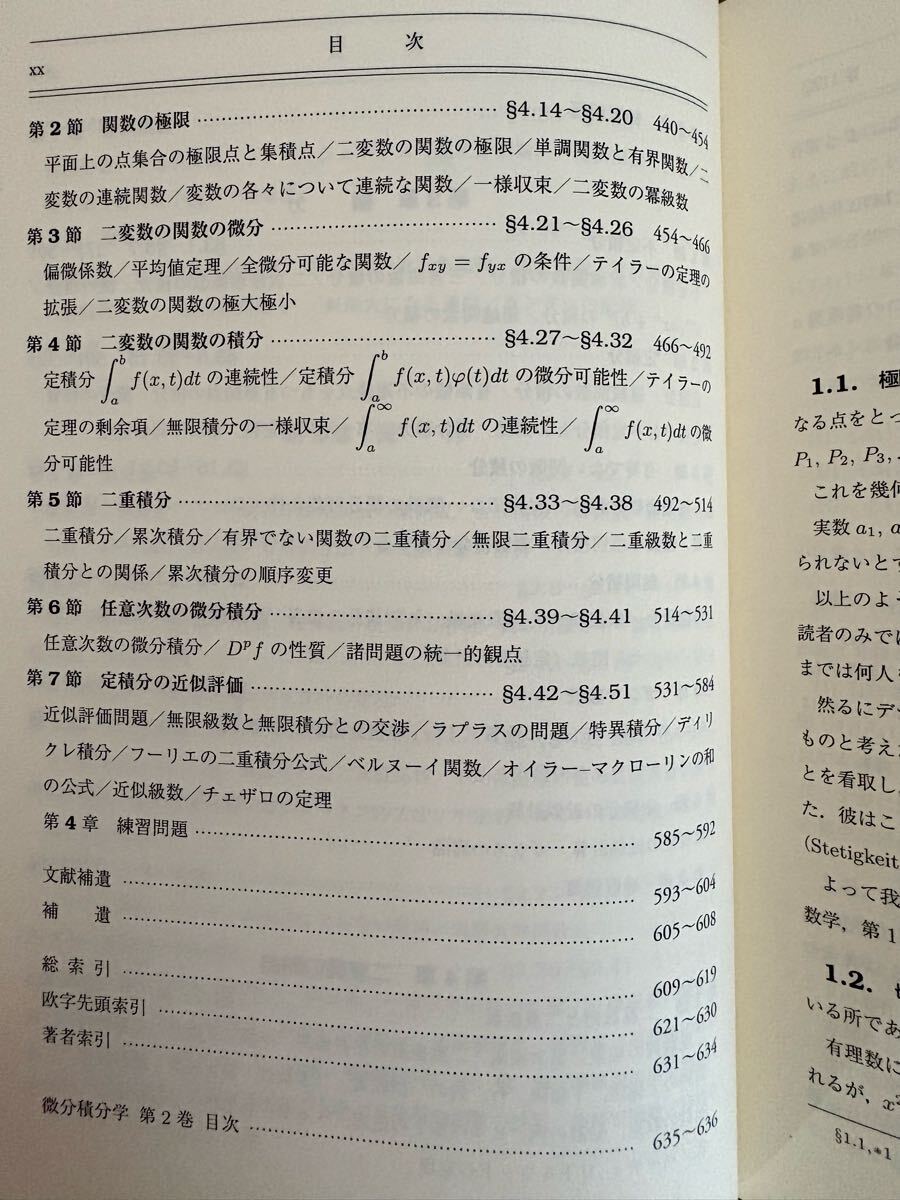 目　次
xx
第2節　関数の極限 …… §4.14～§4.20　440～454
平面上の点集合の極限点と集積点／二変数の関数の極限／単調関数と有界関数／二
変数の連続関数／変数の各々について連続な関数／一様収束／二変数の冪級数
第3節　二変数の関数の微分 …… §4.21～§4.26　454～466
偏微係数／平均値定理／全微分可能な関数／ f_{xy} = f_{yx} の条件／テイラーの定理の
拡張／二変数の関数の極大極小
第4節　二変数の関数の積分 …… §4.27～§4.32　466～492
定積分 ∫_a^b f(x,t)dt の連続性／定積分 ∫_a^b f(x,t)φ(t)dt の微分可能性／テイラーの
定理の剰余項／無限積分の一様収束／∫_a^∞ f(x,t)dt の連続性／∫_a^∞ f(x,t)dt の微
分可能性
第5節　二重積分 …… §4.33～§4.38　492～514
二重積分／累次積分／有界でない関数の二重積分／無限二重積分／二重級数と二重
積分との関係／累次積分の順序変更
第6節　任意次数の微分積分 …… §4.39～§4.41　514～531
任意次数の微分積分／ D^p f の性質／諸問題の統一的観点
第7節　定積分の近似評価 …… §4.42～§4.51　531～584
近似評価問題／無限級数と無限積分との交渉／ラプラスの問題／特異積分／ディリ
クレ積分／フーリエの二重積分公式／ベルヌーイ関数／オイラー–マクローリンの和
の公式／近似級数／チェザロの定理
第4章　練習問題 …… 585～592
文献補遺 …… 593～604
補　遺 …… 605～608
総索引 …… 609～619
欧字先頭索引 …… 621～630
著者索引 …… 631～634
微分積分学 第2巻 目次 …… 635～636
1.1. 極
なる点をとっ
P₁, P₂, P₃,
これを幾何
実数 a₁, a
られないとす
以上のよう
読者のみでは
までは何人も
然るにデー
ものと考え
とを看取し
た．彼はこ
(Stetigkeit
よって我
数学，第1
1.2.
いる所であ
有理数に
れるが，x²
§1.1,*1